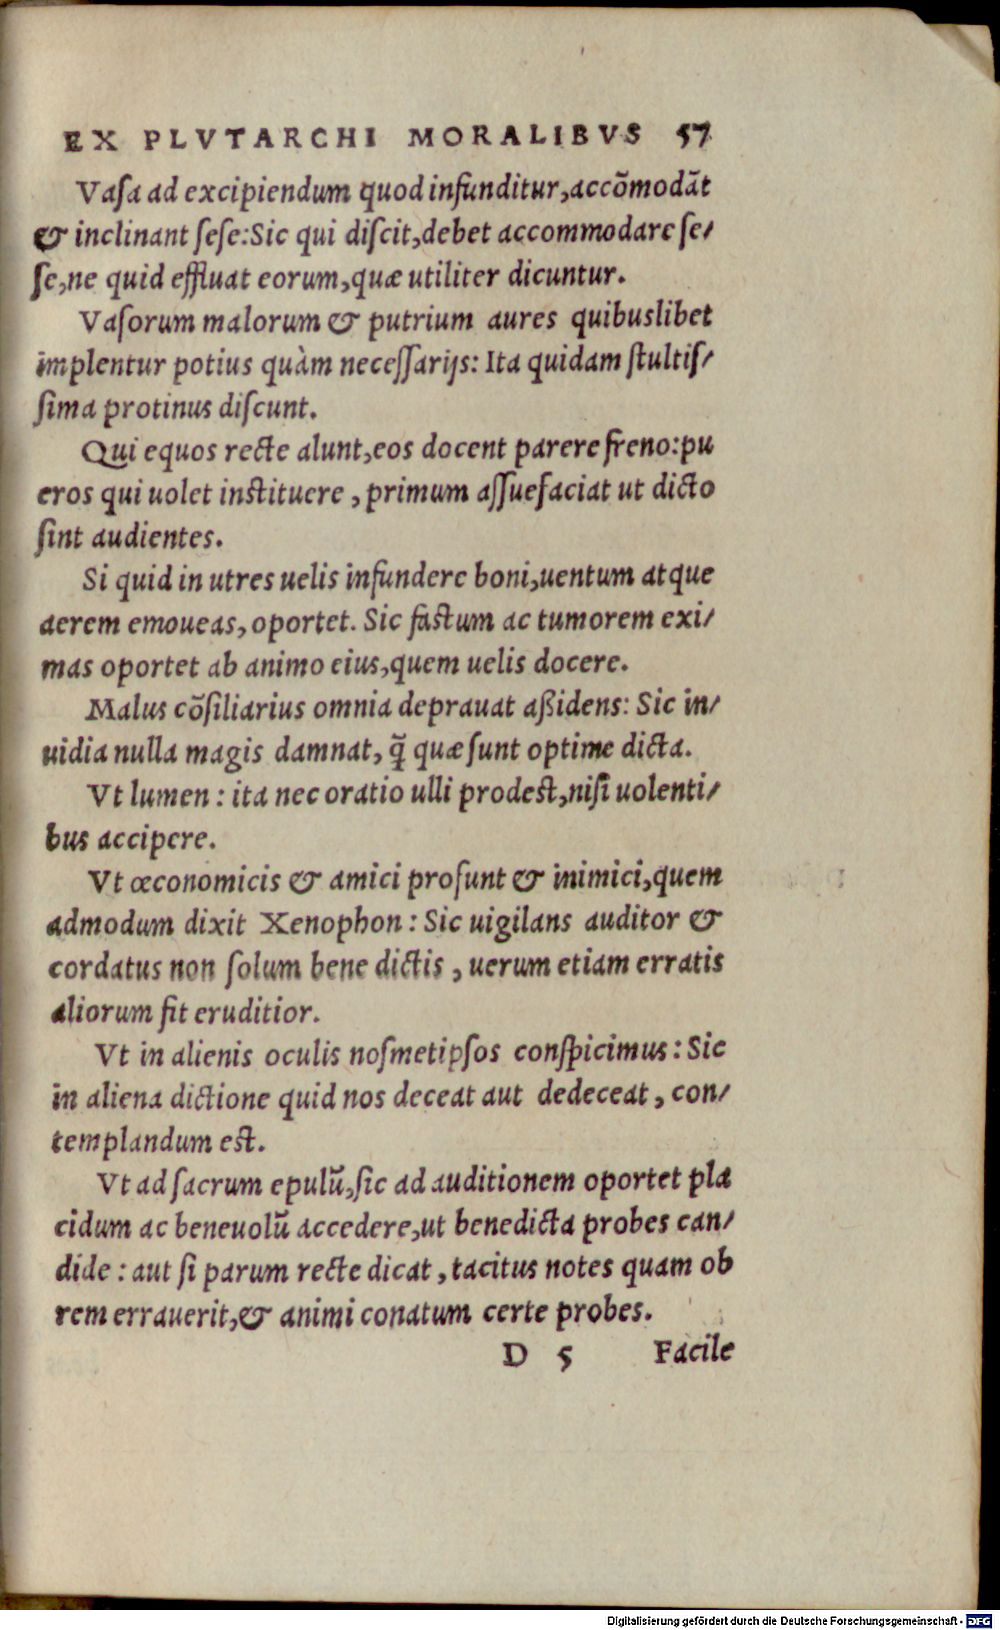 EX PLVTARCHI MORALIBVS 57
Vaſa ad excipiendum quod infunditur, accõmodãt
& inclinant ſeſe: Sic qui diſcit, debet accommodare ſe/
ſe, ne quid effluat eorum, quæ utiliter dicuntur.
Vaſorum malorum & putrium aures quibuslibet
implentur potius quàm neceſſarijs: Ita quidam ſtultiſ/
ſima protinus diſcunt.
Qui equos recte alunt, eos docent parere freno: pu
eros qui uolet inſtituere, primum aſſuefaciat ut dicto
ſint audientes.
Si quid in utres uelis infundere boni, uentum atque
aerem emoueas, oportet. Sic faſtum ac tumorem exi/
mas oportet ab animo eius, quem uelis docere.
Malus cõſiliarius omnia deprauat aßidens: Sic in/
uidia nulla magis damnat, q̃ quæ ſunt optime dicta.
Vt lumen: ita nec oratio ulli prodeſt, niſi uolenti/
bus accipere.
Vt œconomicis & amici proſunt & inimici, quem
admodum dixit Xenophon: Sic uigilans auditor &
cordatus non ſolum bene dictis, uerum etiam erratis
aliorum fit eruditior.
Vt in alienis oculis noſmetipſos conſpicimus: Sic
in aliena dictione quid nos deceat aut dedeceat, con/
templandum eſt.
Vt ad ſacrum epulũ, ſic ad auditionem oportet pla
cidum ac beneuolũ accedere, ut benedicta probes can/
dide: aut ſi parum recte dicat, tacitus notes quam ob
rem errauerit, & animi conatum certe probes.
D 5 Facile
Digitalisierung gefördert durch die Deutsche Forschungsgemeinschaft - DFG